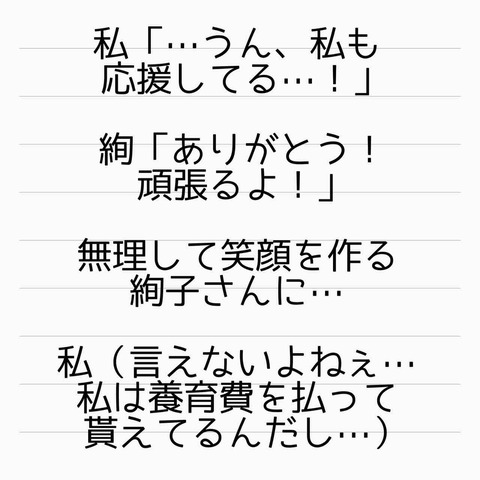 私「…うん、私も
応援してる…！」
絢「ありがとう！
頑張るよ！」
無理して笑顔を作る
絢子さんに…
私（言えないよねぇ…
私は養育費を払って
貰えてるんだし…）